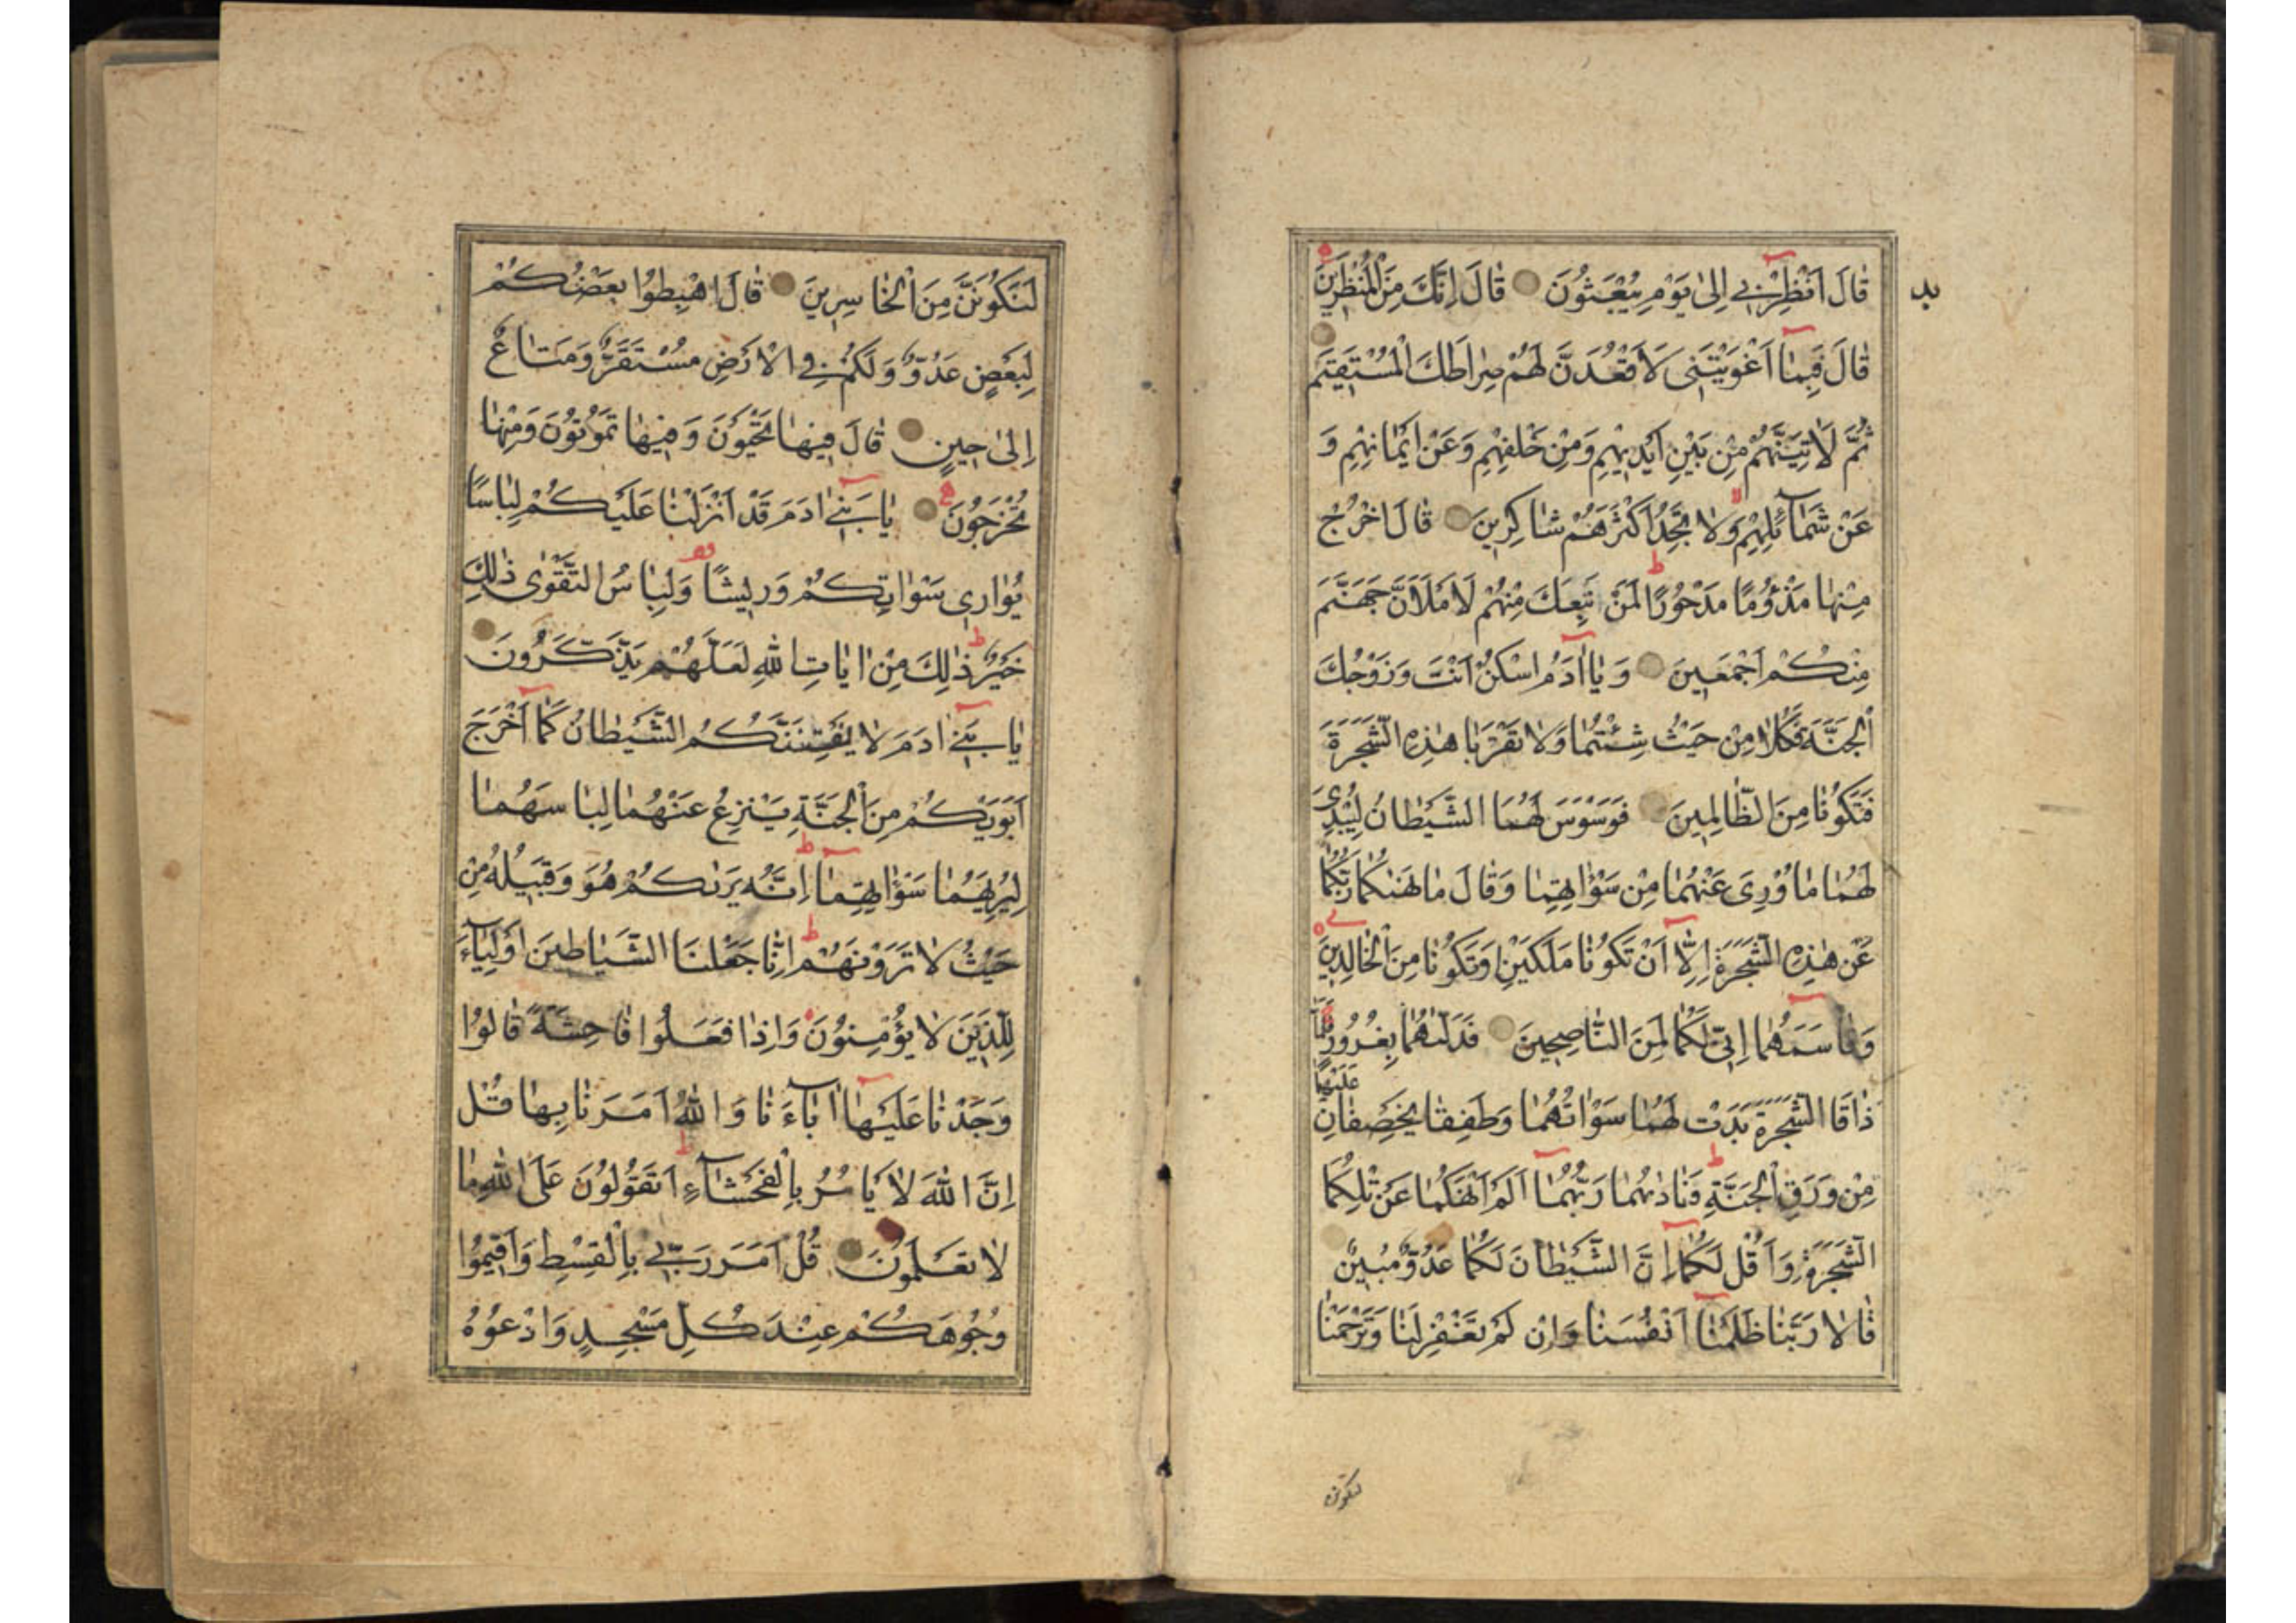 قَالَ اَنْظِرْنٖي اِلٰى يَوْمِ يُبْعَثُونَ قَالَ اِنَّكَ مِنَ الْمُنْظَرٖينَ
قَالَ فَبِمَا اَغْوَيْتَنٖى لَاَقْعُدَنَّ لَهُمْ صِرَاطَكَ الْمُسْتَقٖيمَ
ثُمَّ لَاٰتِيَنَّهُمْ مِنْ بَيْنِ اَيْدٖيهِمْ وَمِنْ خَلْفِهِمْ وَعَنْ اَيْمَانِهِمْ وَ
عَنْ شَمَائِلِهِمْ وَلَا تَجِدُ اَكْثَرَهُمْ شَاكِرٖينَ قَالَ اخْرُجْ
مِنْهَا مَذْؤُمًا مَدْحُورًا لَمَنْ تَبِعَكَ مِنْهُمْ لَاَمْلَاَنَّ جَهَنَّمَ
مِنْكُمْ اَجْمَعٖينَ وَيَا اٰدَمُ اسْكُنْ اَنْتَ وَزَوْجُكَ
الْجَنَّةَ فَكُلَا مِنْ حَيْثُ شِئْتُمَا وَلَا تَقْرَبَا هٰذِهِ الشَّجَرَةَ
فَتَكُونَا مِنَ الظَّالِمٖينَ فَوَسْوَسَ لَهُمَا الشَّيْطَانُ لِيُبْدِىَ
لَهُمَا مَا وُرِىَ عَنْهُمَا مِنْ سَوْاٰتِهِمَا وَقَالَ مَا نَهٰیكُمَا رَبُّكُمَا
عَنْ هٰذِهِ الشَّجَرَةِ اِلَّا اَنْ تَكُونَا مَلَكَيْنِ اَوْ تَكُونَا مِنَ الْخَالِدٖينَ
وَقَاسَمَهُمَا اِنّٖى لَكُمَا لَمِنَ النَّاصِحٖينَ فَدَلّٰیهُمَا بِغُرُورٍ فَلَمَّا
ذَاقَا الشَّجَرَةَ بَدَتْ لَهُمَا سَوْاٰتُهُمَا وَطَفِقَا يَخْصِفَانِ عَلَيْهِمَا
مِنْ وَرَقِ الْجَنَّةِ وَنَادٰیهُمَا رَبُّهُمَا اَلَمْ اَنْهَكُمَا عَنْ تِلْكُمَا
الشَّجَرَةِ وَاَقُلْ لَكُمَا اِنَّ الشَّيْطَانَ لَكُمَا عَدُوٌّ مُبٖينٌ
قَالَا رَبَّنَا ظَلَمْنَا اَنْفُسَنَا وَاِنْ لَمْ تَغْفِرْ لَنَا وَتَرْحَمْنَا
لنكونن
لَنَكُونَنَّ مِنَ الْخَاسِرٖينَ قَالَ اهْبِطُوا بَعْضُكُمْ
لِبَعْضٍ عَدُوٌّ وَلَكُمْ فِي الْاَرْضِ مُسْتَقَرٌّ وَمَتَاعٌ
اِلٰى حٖينٍ قَالَ فٖيهَا تَحْيَوْنَ وَفٖيهَا تَمُوتُونَ وَمِنْهَا
تُخْرَجُونَ يَا بَنٖي اٰدَمَ قَدْ اَنْزَلْنَا عَلَيْكُمْ لِبَاسًا
يُوَارٖى سَوْاٰتِكُمْ وَرٖيشًا وَلِبَاسُ التَّقْوٰى ذٰلِكَ
خَيْرٌ ذٰلِكَ مِنْ اٰيَاتِ اللّٰهِ لَعَلَّهُمْ يَذَّكَّرُونَ
يَا بَنٖي اٰدَمَ لَا يَفْتِنَنَّكُمُ الشَّيْطَانُ كَمَا اَخْرَجَ
اَبَوَيْكُمْ مِنَ الْجَنَّةِ يَنْزِعُ عَنْهُمَا لِبَاسَهُمَا
لِيُرِيَهُمَا سَوْاٰتِهِمَا اِنَّهُ يَرٰیكُمْ هُوَ وَقَبٖيلُهُ مِنْ
حَيْثُ لَا تَرَوْنَهُمْ اِنَّا جَعَلْنَا الشَّيَاطٖينَ اَوْلِيَاءَ
لِلَّذٖينَ لَا يُؤْمِنُونَ وَاِذَا فَعَلُوا فَاحِشَةً قَالُوا
وَجَدْنَا عَلَيْهَا اٰبَاءَنَا وَاللّٰهُ اَمَرَنَا بِهَا قُلْ
اِنَّ اللّٰهَ لَا يَاْمُرُ بِالْفَحْشَاءِ اَتَقُولُونَ عَلَى اللّٰهِ مَا
لَا تَعْلَمُونَ قُلْ اَمَرَ رَبّٖي بِالْقِسْطِ وَاَقٖيمُوا
وُجُوهَكُمْ عِنْدَ كُلِّ مَسْجِدٍ وَادْعُوهُ